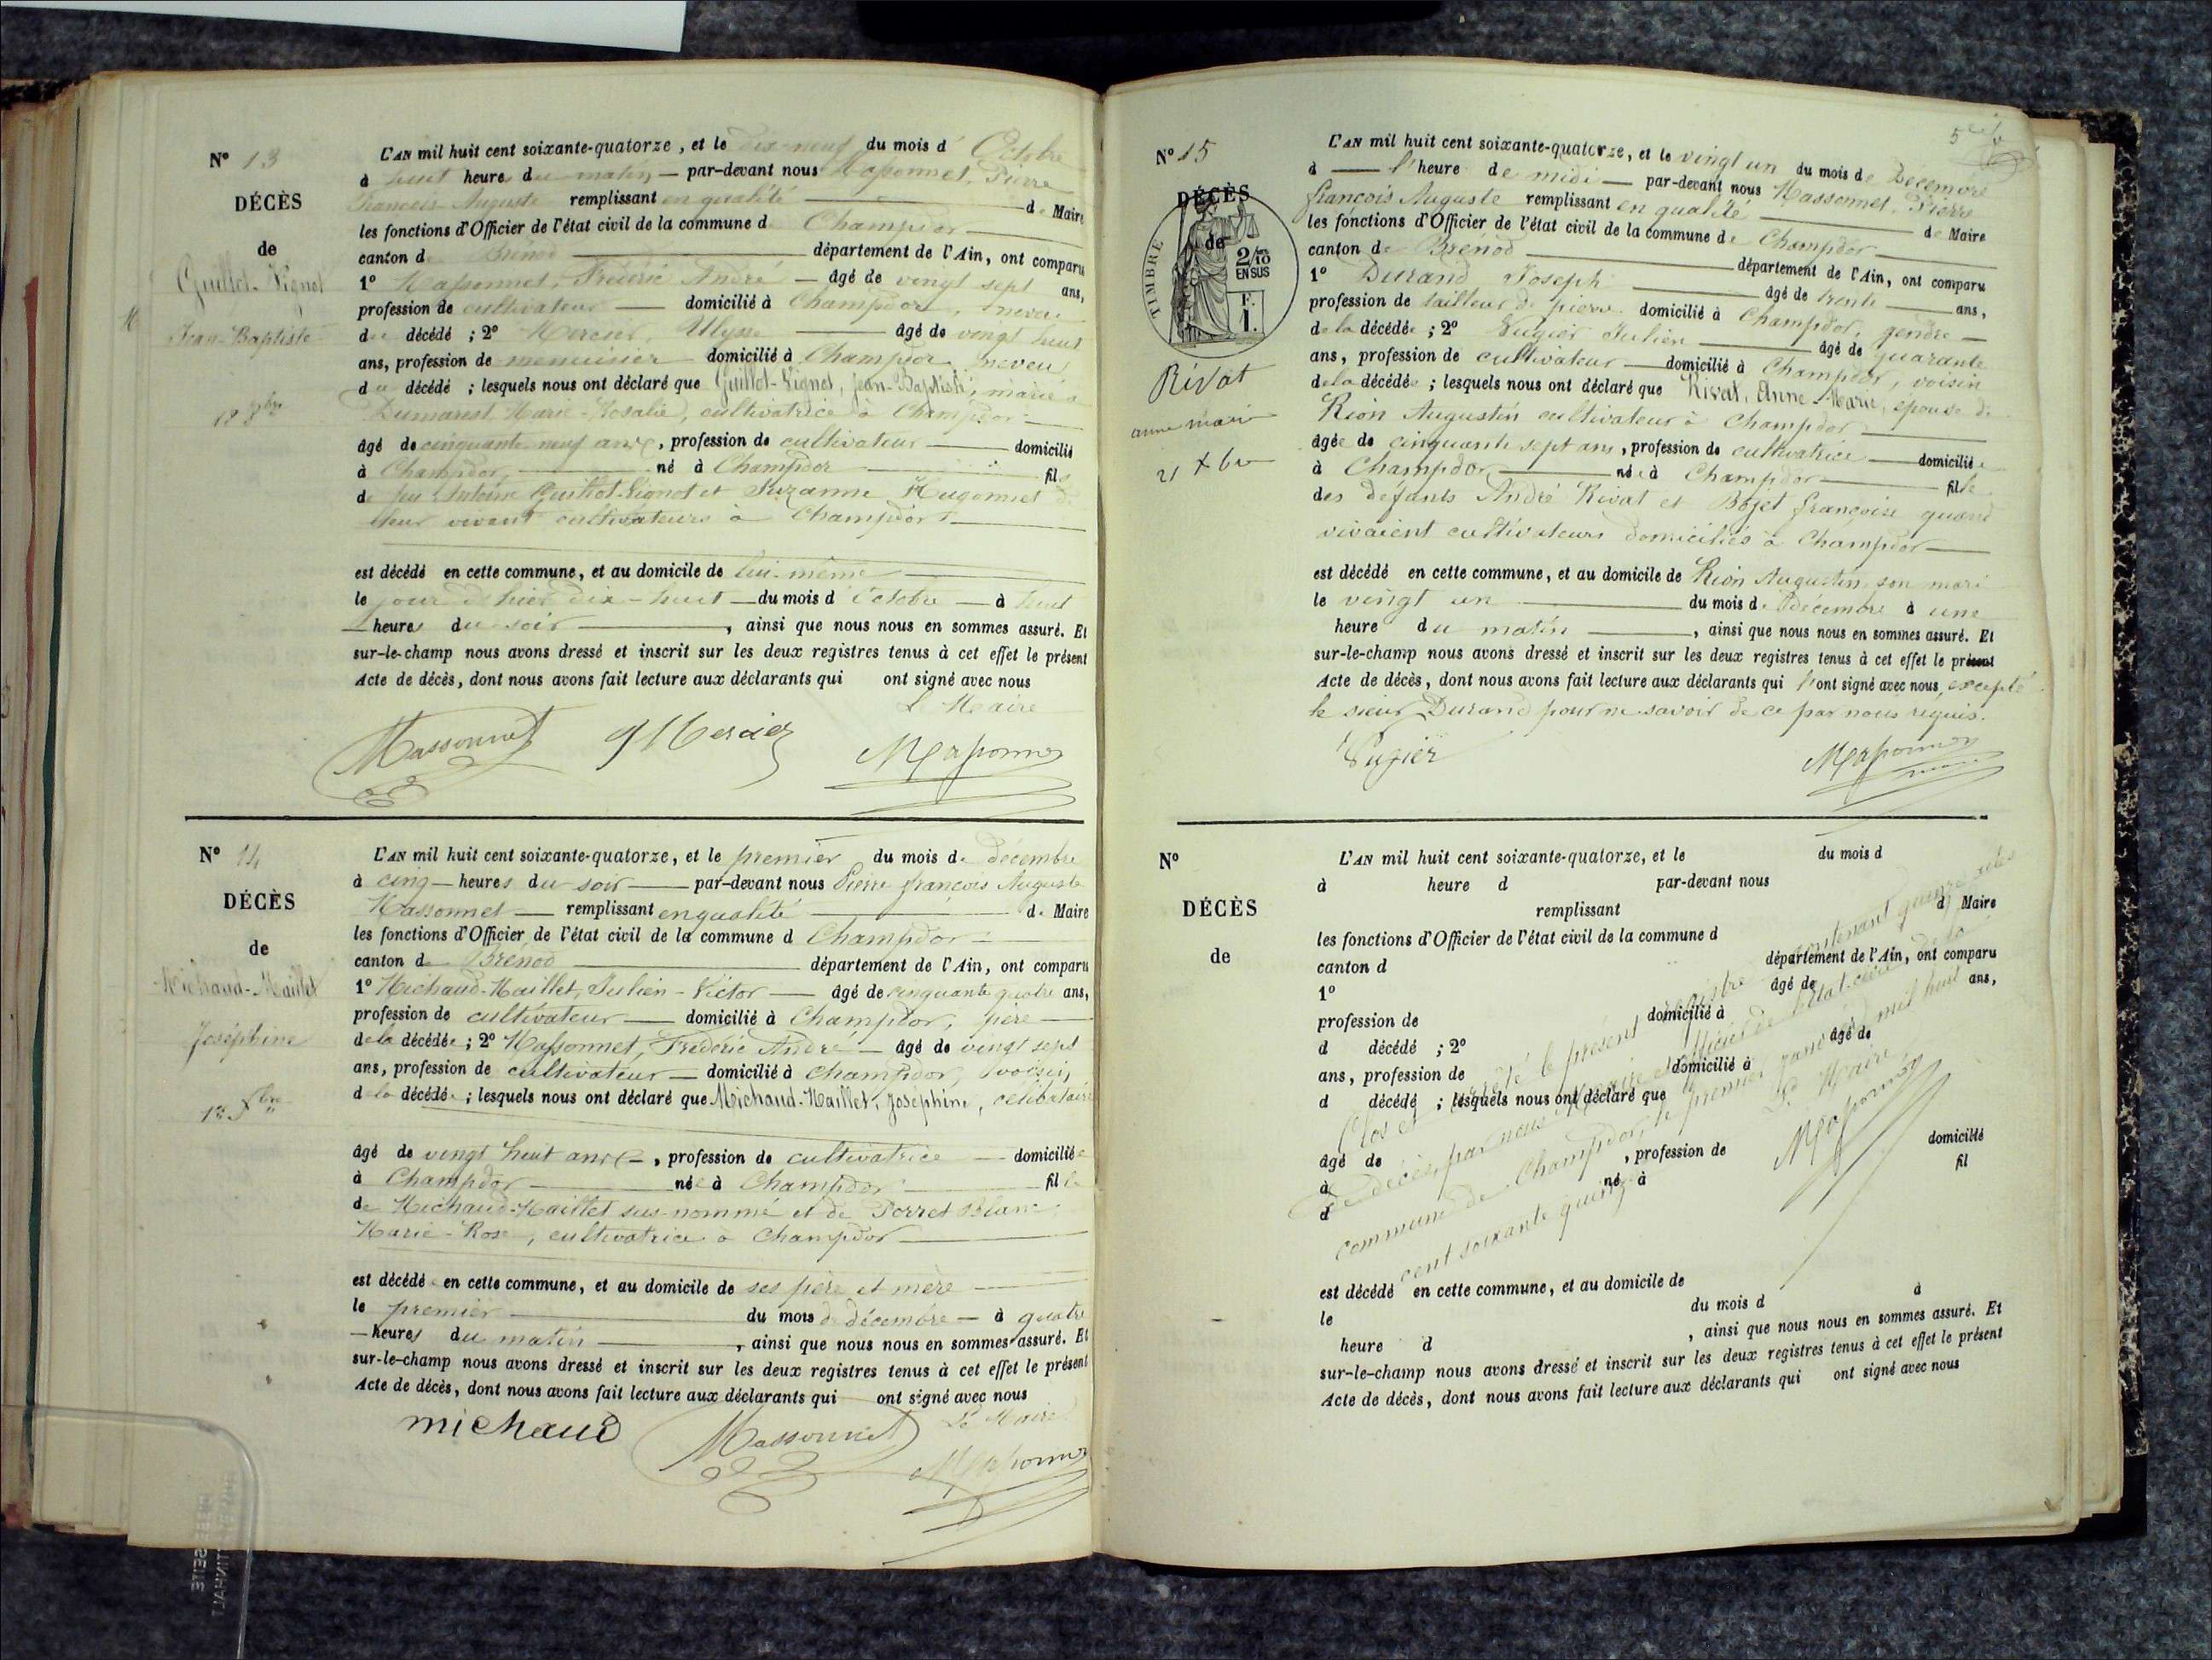 N° 13
DÉCÈS
de
Guillot-Vignot
Jean-Baptiste
18 8bre
L'AN mil huit cent soixante-quatorze, et le dix-neuf du mois d'Octobre
à huit heures du matin — par-devant nous Massonnet, Pierre
François Auguste remplissant en qualité de Maire
les fonctions d'Officier de l'état civil de la commune d Champdor
canton de Brénod département de l'Ain, ont comparu
1° Massonnet, Frédéric André — âgé de vingt sept ans,
profession de cultivateur — domicilié à Champdor, neveu
du décédé ; 2° Mercier, Ulysse âgé de vingt huit
ans, profession de menuisier domicilié à Champdor neveu
du décédé ; lesquels nous ont déclaré que Guillot-Vignot, Jean-Baptiste, marié à
Dumarest Marie-Rosalie, cultivatrice à Champdor
âgé de cinquante neuf ans, profession de cultivateur domicilié
à Champdor, né à Champdor fils
de feu Antoine Guillot-Vignot et Suzanne Hugonnet de
leur vivant cultivateurs à Champdor
est décédé en cette commune, et au domicile de lui-même
le jour d'hier dix-huit du mois d'Octobre — à huit
heures du soir, ainsi que nous nous en sommes assuré. Et
sur-le-champ nous avons dressé et inscrit sur les deux registres tenus à cet effet le présent
Acte de décès, dont nous avons fait lecture aux déclarants qui ont signé avec nous
Le Maire
Massonnet Mercier Massonnet
N° 14
DÉCÈS
de
Michaud-Maillet
Joséphine
1er Xbre
L'AN mil huit cent soixante-quatorze, et le premier du mois de décembre
à cinq heures du soir par-devant nous Pierre françois Auguste
Massonnet — remplissant en qualité de Maire
les fonctions d'Officier de l'état civil de la commune d Champdor
canton de Brénod département de l'Ain, ont comparu
1° Michaud-Maillet, Julien-Victor — âgé de cinquante quatre ans,
profession de cultivateur — domicilié à Champdor, père
de la décédée ; 2° Massonnet, Frédéric André — âgé de vingt sept
ans, profession de cultivateur — domicilié à Champdor, voisin
de la décédée ; lesquels nous ont déclaré que Michaud-Maillet, Joséphine, célibataire
âgé de vingt huit ans, profession de cultivatrice domiciliée
à Champdor née à Champdor fille
de Michaud-Maillet sus-nommé et de Perret Blanc
Marie-Rose, cultivatrice à Champdor
est décédée en cette commune, et au domicile de ses père et mère
le premier du mois de décembre — à quatre
heures du matin, ainsi que nous nous en sommes assuré. Et
sur-le-champ nous avons dressé et inscrit sur les deux registres tenus à cet effet le présent
Acte de décès, dont nous avons fait lecture aux déclarants qui ont signé avec nous
Le Maire
michaud Massonnet Massonnet
N° 15
DÉCÈS
de
TIMBRE
2/10
EN SUS
F.
1.
Rivat
anne marie
21 Xbre
L'AN mil huit cent soixante-quatorze, et le vingt un du mois de Décembre
à — l'heure de midi — par-devant nous Massonnet, Pierre
françois Auguste remplissant en qualité de Maire
les fonctions d'Officier de l'état civil de la commune de Champdor
canton de Brénod département de l'Ain, ont comparu
1° Durand Joseph âgé de trente ans,
profession de tailleur de pierre domicilié à Champdor, gendre
de la décédée ; 2° Pugier Julien âgé de quarante
ans, profession de cultivateur domicilié à Champdor, voisin
de la décédée ; lesquels nous ont déclaré que Rivat, Anne-Marie, épouse de
Rion Augustin cultivateur à Champdor
âgée de cinquante sept ans, profession de cultivatrice domiciliée
à Champdor née à Champdor fille
des défunts André Rivat et Bojet françoise quand
vivaient cultivateurs domiciliés à Champdor
est décédé en cette commune, et au domicile de Rion Augustin son mari
le vingt un du mois de Décembre à une
heure du matin, ainsi que nous nous en sommes assuré. Et
sur-le-champ nous avons dressé et inscrit sur les deux registres tenus à cet effet le présent
Acte de décès, dont nous avons fait lecture aux déclarants qui l'ont signé avec nous, excepté
le sieur Durand pour ne savoir de ce par nous requis.
Pugier Massonnet
maire
N°
DÉCÈS
de
L'AN mil huit cent soixante-quatorze, et le du mois d
à heure d par-devant nous
remplissant d Maire
les fonctions d'Officier de l'état civil de la commune d
canton d département de l'Ain, ont comparu
1° âgé de ans,
profession de domicilié à
d décédé ; 2° âgé de
ans, profession de domicilié à
d décédé ; lesquels nous ont déclaré que
âgé de , profession de domicilié
à né à fil
d
est décédé en cette commune, et au domicile de
le du mois d à
heure d , ainsi que nous nous en sommes assuré. Et
sur-le-champ nous avons dressé et inscrit sur les deux registres tenus à cet effet le présent
Acte de décès, dont nous avons fait lecture aux déclarants qui ont signé avec nous
Clos et arrêté le présent registre contenant quinze actes
de décès, par nous Maire et officier de l'état-civil de la
commune de Champdor, le premier janvier mil huit
cent soixante quinze
Le Maire
Massonnet